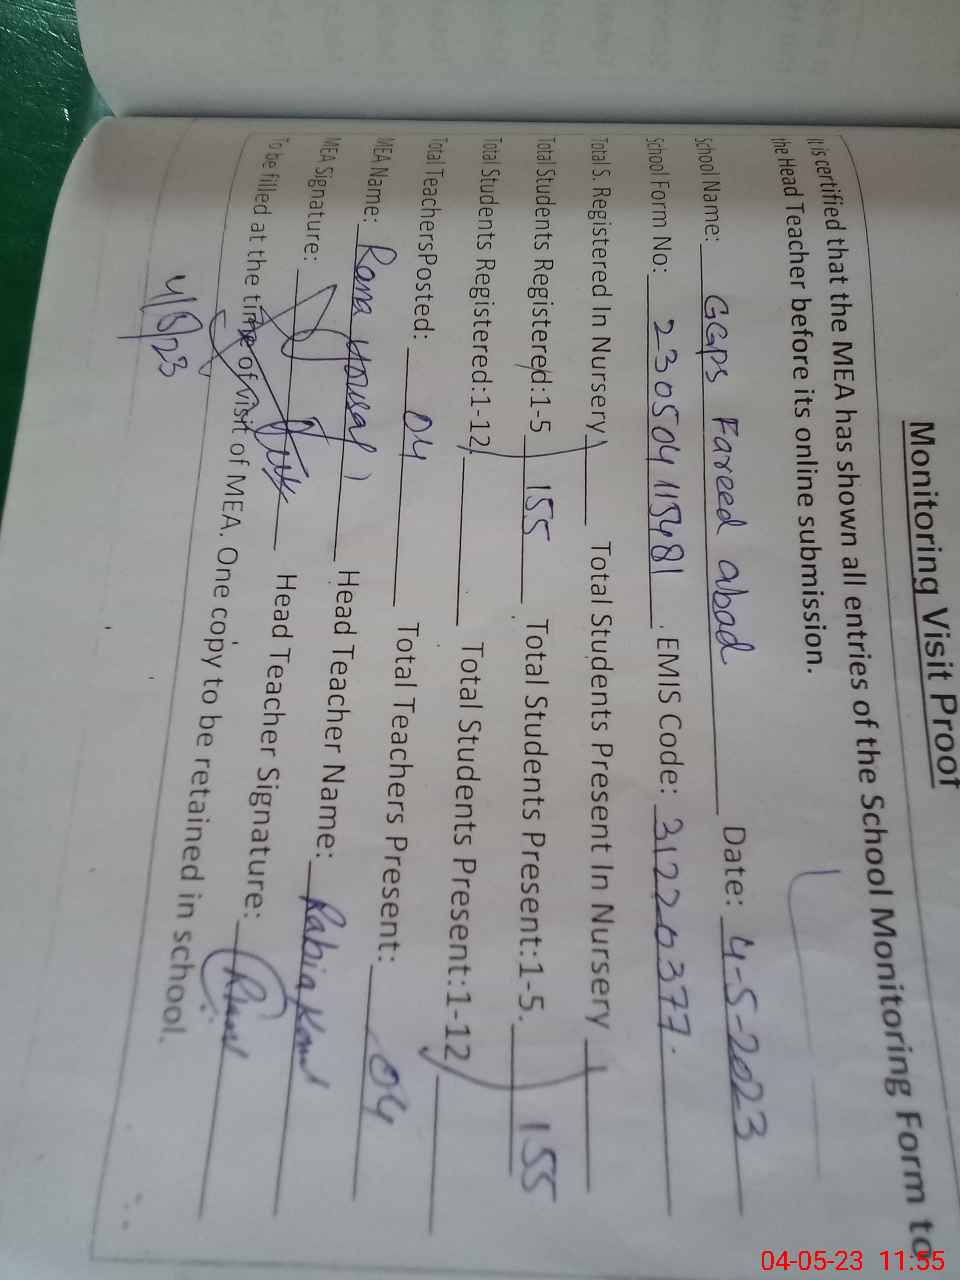 Monitoring Visit Proof
It is certified that the MEA has shown all entries of the School Monitoring Form to
the Head Teacher before its online submission.
School Name: GGPS Fareed abad Date: 4-5-2023
School Form No: 230504115481 . EMIS Code: 31220377.
Total S. Registered In Nursery Total Students Present In Nursery
Total Students Registered:1-5 155 . Total Students Present:1-5. 155
Total Students Registered:1-12 Total Students Present:1-12
Total TeachersPosted: 04 Total Teachers Present: 04
MEA Name: Rana Head Teacher Name: Rabia
MEA Signature: Head Teacher Signature:
To be filled at the time of visit of MEA. One copy to be retained in school.
4/5/23
04-05-23 11:55